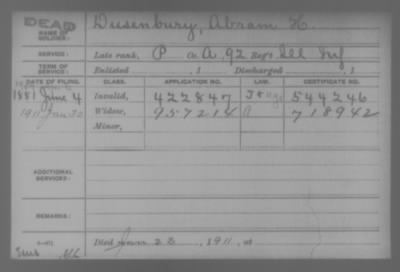 DEAD
NAME OF SOLDIER: Dusenbury, Abram H.
SERVICE: Late rank, P Co. A, 92 Reg't Ill Inf
TERM OF SERVICE: Enlisted , 1 Discharged , 1
DATE OF FILING. CLASS. APPLICATION NO. LAW. CERTIFICATE NO.
1881 June 4 Invalid, 422847 544246
1911 Jan 30 Widow, 957214 A 718942
Minor,
ADDITIONAL SERVICES:
REMARKS:
Died 23, 1911, at